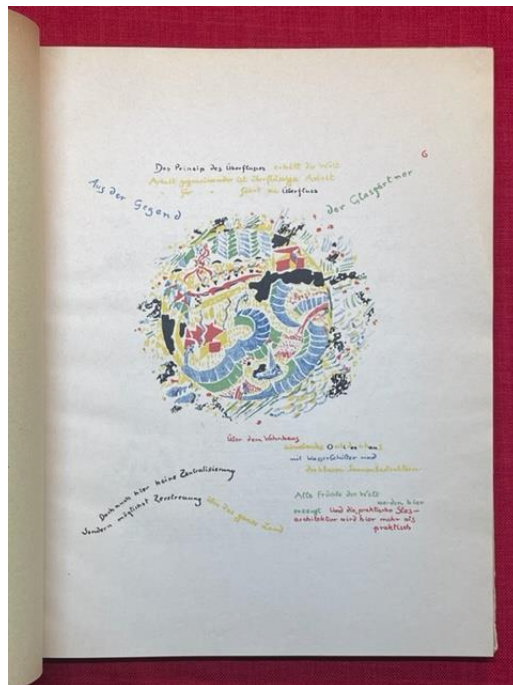 Das Prinzip des Überflusses erhält die Welt
Arbeit gegeneinander ist überflüssige Arbeit
für - führt zu Überfluss
6
Aus der Gegend
der Glasgärtner
Über dem Wohnhaus
mit Wasserschütter und
drehbaren Sonnen
Doch auch hier keine Zentralisierung
sondern möglichst Zerstreuung über das ganze Land
Alle Früchte der Welt
werden hier
erzeugt Und die praktische Glas-
architektur wird hier mehr als
praktisch